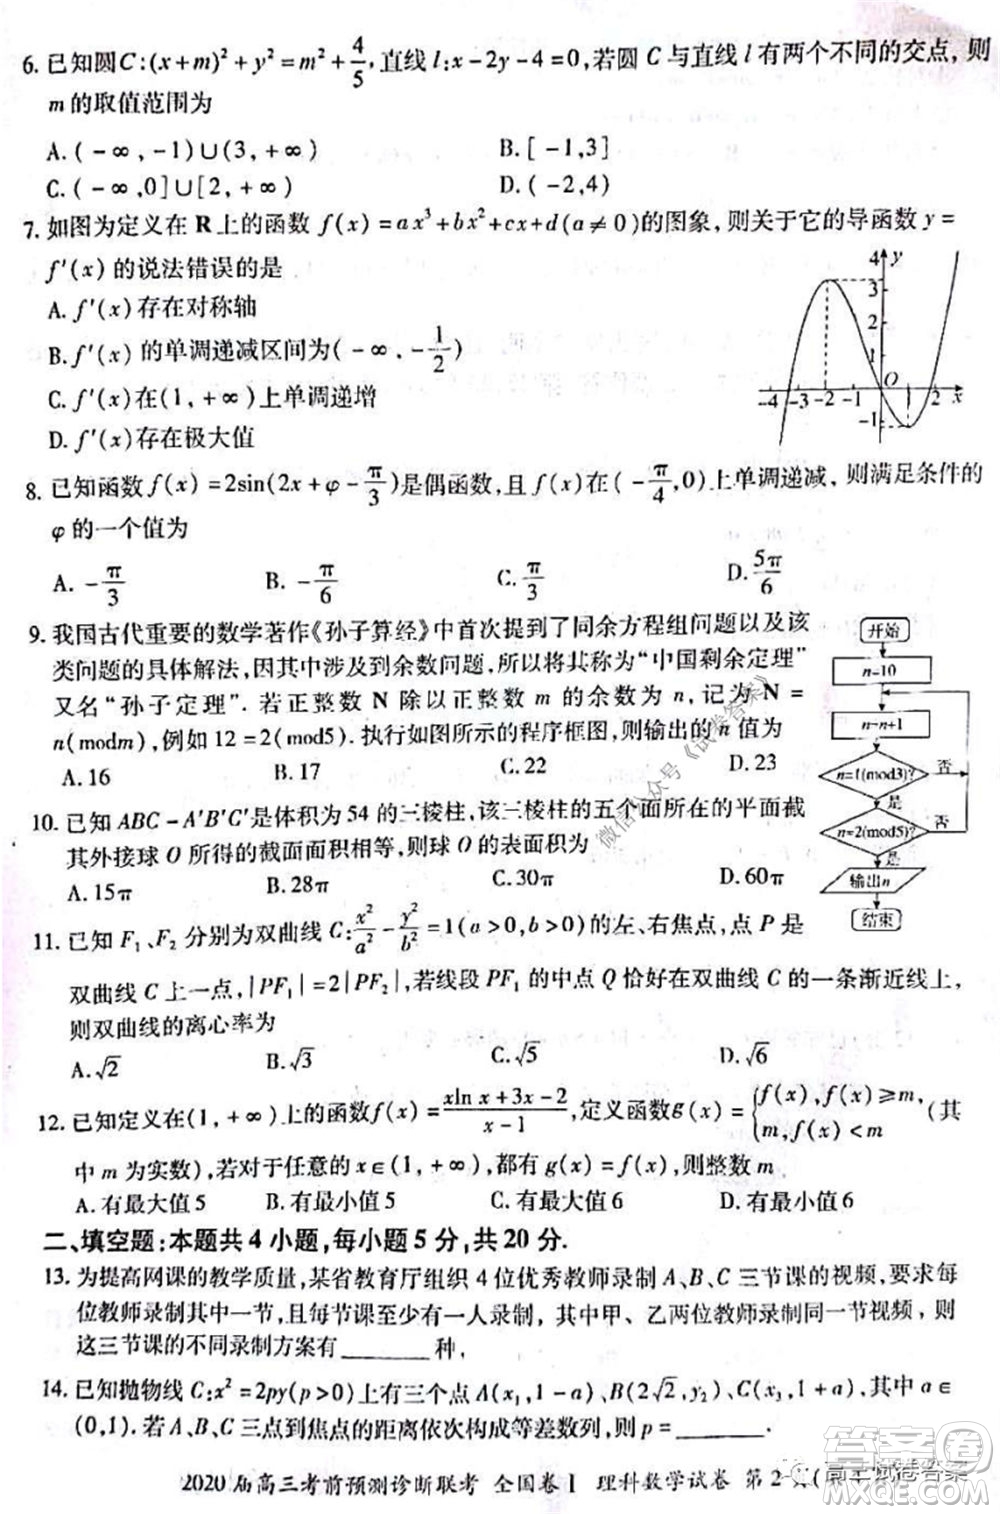 6. 已知圆C:(x+m)²+y²=m²+4/5,直线l:x-2y-4=0,若圆C与直线l有两个不同的交点,则
m的取值范围为
A.(-∞,-1)∪(3,+∞) B.[-1,3]
C.(-∞,0]∪[2,+∞) D.(-2,4)
7. 如图为定义在R上的函数f(x)=ax³+bx²+cx+d(a≠0)的图象,则关于它的导函数y=
f′(x)的说法错误的是
A.f′(x)存在对称轴
B.f′(x)的单调递减区间为(-∞,-1/2)
C.f′(x)在(1,+∞)上单调递增
D.f′(x)存在极大值
4 y
3
2
1
O
-4 -3 -2 -1 2 x
-1
8. 已知函数f(x)=2sin(2x+φ-π/3)是偶函数,且f(x)在(-π/4,0)上单调递减,则满足条件的
φ的一个值为
A.-π/3 B.-π/6 C.π/3 D.5π/6
9. 我国古代重要的数学著作《孙子算经》中首次提到了同余方程组问题以及该
类问题的具体解法,因其中涉及到余数问题,所以将其称为“中国剩余定理”
又名“孙子定理”.若正整数N除以正整数m的余数为n,记为N=
n(modm),例如12=2(mod5).执行如图的程序框图,则输出的n值为
A.16 B.17 C.22 D.23
开始
n=10
n=n+1
n=1(mod3)? 否
是
n=2(mod5)? 否
是
输出n
结束
10. 已知ABC-A′B′C′是体积为54的三棱柱,该三棱柱的五个面所在的平面截
其外接球O所得的截面面积相等,则球O的表面积为
A.15π B.28π C.30π D.60π
11. 已知F₁、F₂分别为双曲线C:x²/a²-y²/b²=1(a>0,b>0)的左、右焦点,点P是
双曲线C上一点,|PF₁|=2|PF₂|,若线段PF₁的中点Q恰好在双曲线C的一条渐近线上,
则双曲线的离心率为
A.√2 B.√3 C.√5 D.√6
12. 已知定义在(1,+∞)上的函数f(x)=(xlnx+3x-2)/(x-1),定义函数g(x)={f(x),f(x)≥m, m,f(x)<m (其
中m为实数),若对于任意的x∈(1,+∞),都有g(x)=f(x),则整数m
A.有最大值5 B.有最小值5 C.有最大值6 D.有最小值6
二、填空题:本题共4小题,每小题5分,共20分.
13. 为提高网课的教学质量,某省教育厅组织4位优秀教师录制A、B、C三节课的视频,要求每
位教师录制其中一节,且每节课至少有一人录制,其中甲、乙两位教师录制同一节视频,则
这三节课的不同录制方案有______种.
14. 已知抛物线C:x²=2py(p>0)上有三个点A(x₁,1-a)、B(2√2,y₂)、C(x₃,1+a),其中a∈
(0,1).若A、B、C三点到焦点的距离依次构成等差数列,则p=______.
2020届高三考前预测诊断联考 全国卷Ⅰ 理科数学试卷 第2页(
微信公众号《试卷答案》
高三试卷答案
作业精灵